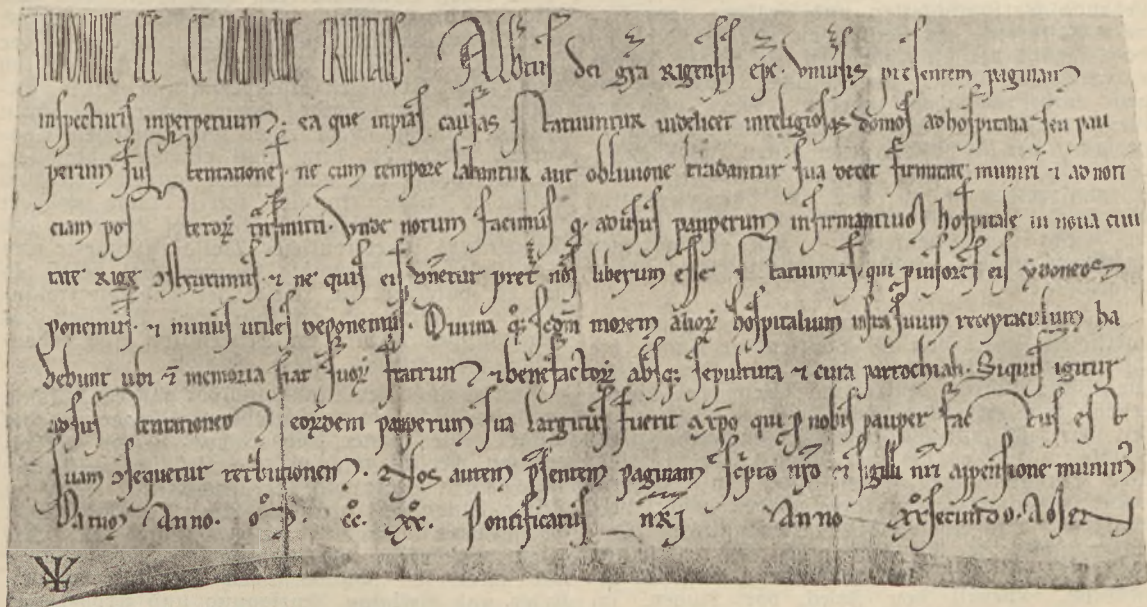 In nomine sce et individue trinitatis. Albtus dei gra rigensis epc. vnivsis presentem paginam
inspecturis inperpetuum. ea que inpias causas statuuntur videlicet inreligiosas domos adhospitalia seu pau
perum sustentationes. ne cum tempore labantur aut oblivione tradantur sua decet firmitate muniri et adnoti
ciam posteroꝝ tnsmitti. Vnde notum facimus q adusus pauperum infirmantium hospitale in nova civi
tate rige ꝯstruximus. et ne quis eis dnetur pret nos liberum esse statuimus. qui puisores eis ydoneos
ponemus. et minus utiles deponemus. Divina qꝫ scdm morem alioꝝ hospitalium infra suum receptaculum ha
bebunt ubi et memoria fiat suoꝝ fratrum et benefactoꝝ absqꝫ sepultura et cura parrochiali. Siquis igitur
adsustentationem eoꝝdem pauperum sua largitus fuerit axpo qui p nobis pauper factus est
suam ꝯsequetur retbutionem. Nos autem psentem paginam scpto nro et sigilli nri appensione munim
Datum Anno. oM. cc. xx. Pontificatus nri Anno xx secundo.